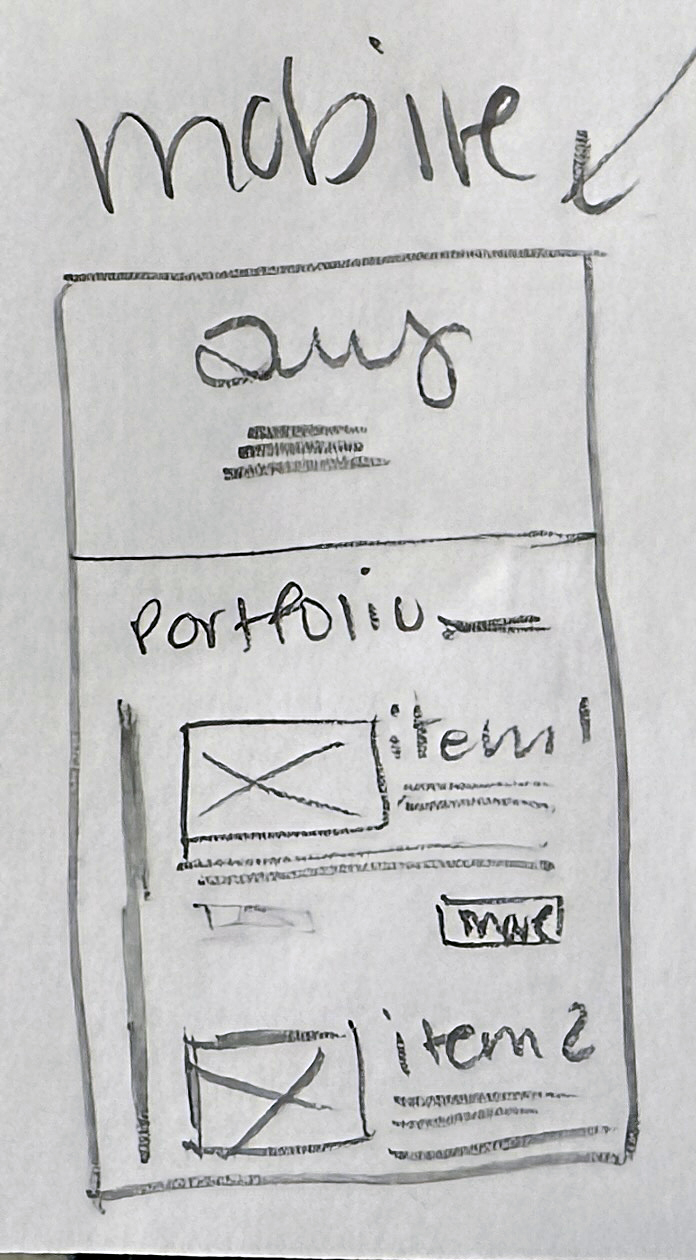 mobile
Portfolio
item 1
more
item 2